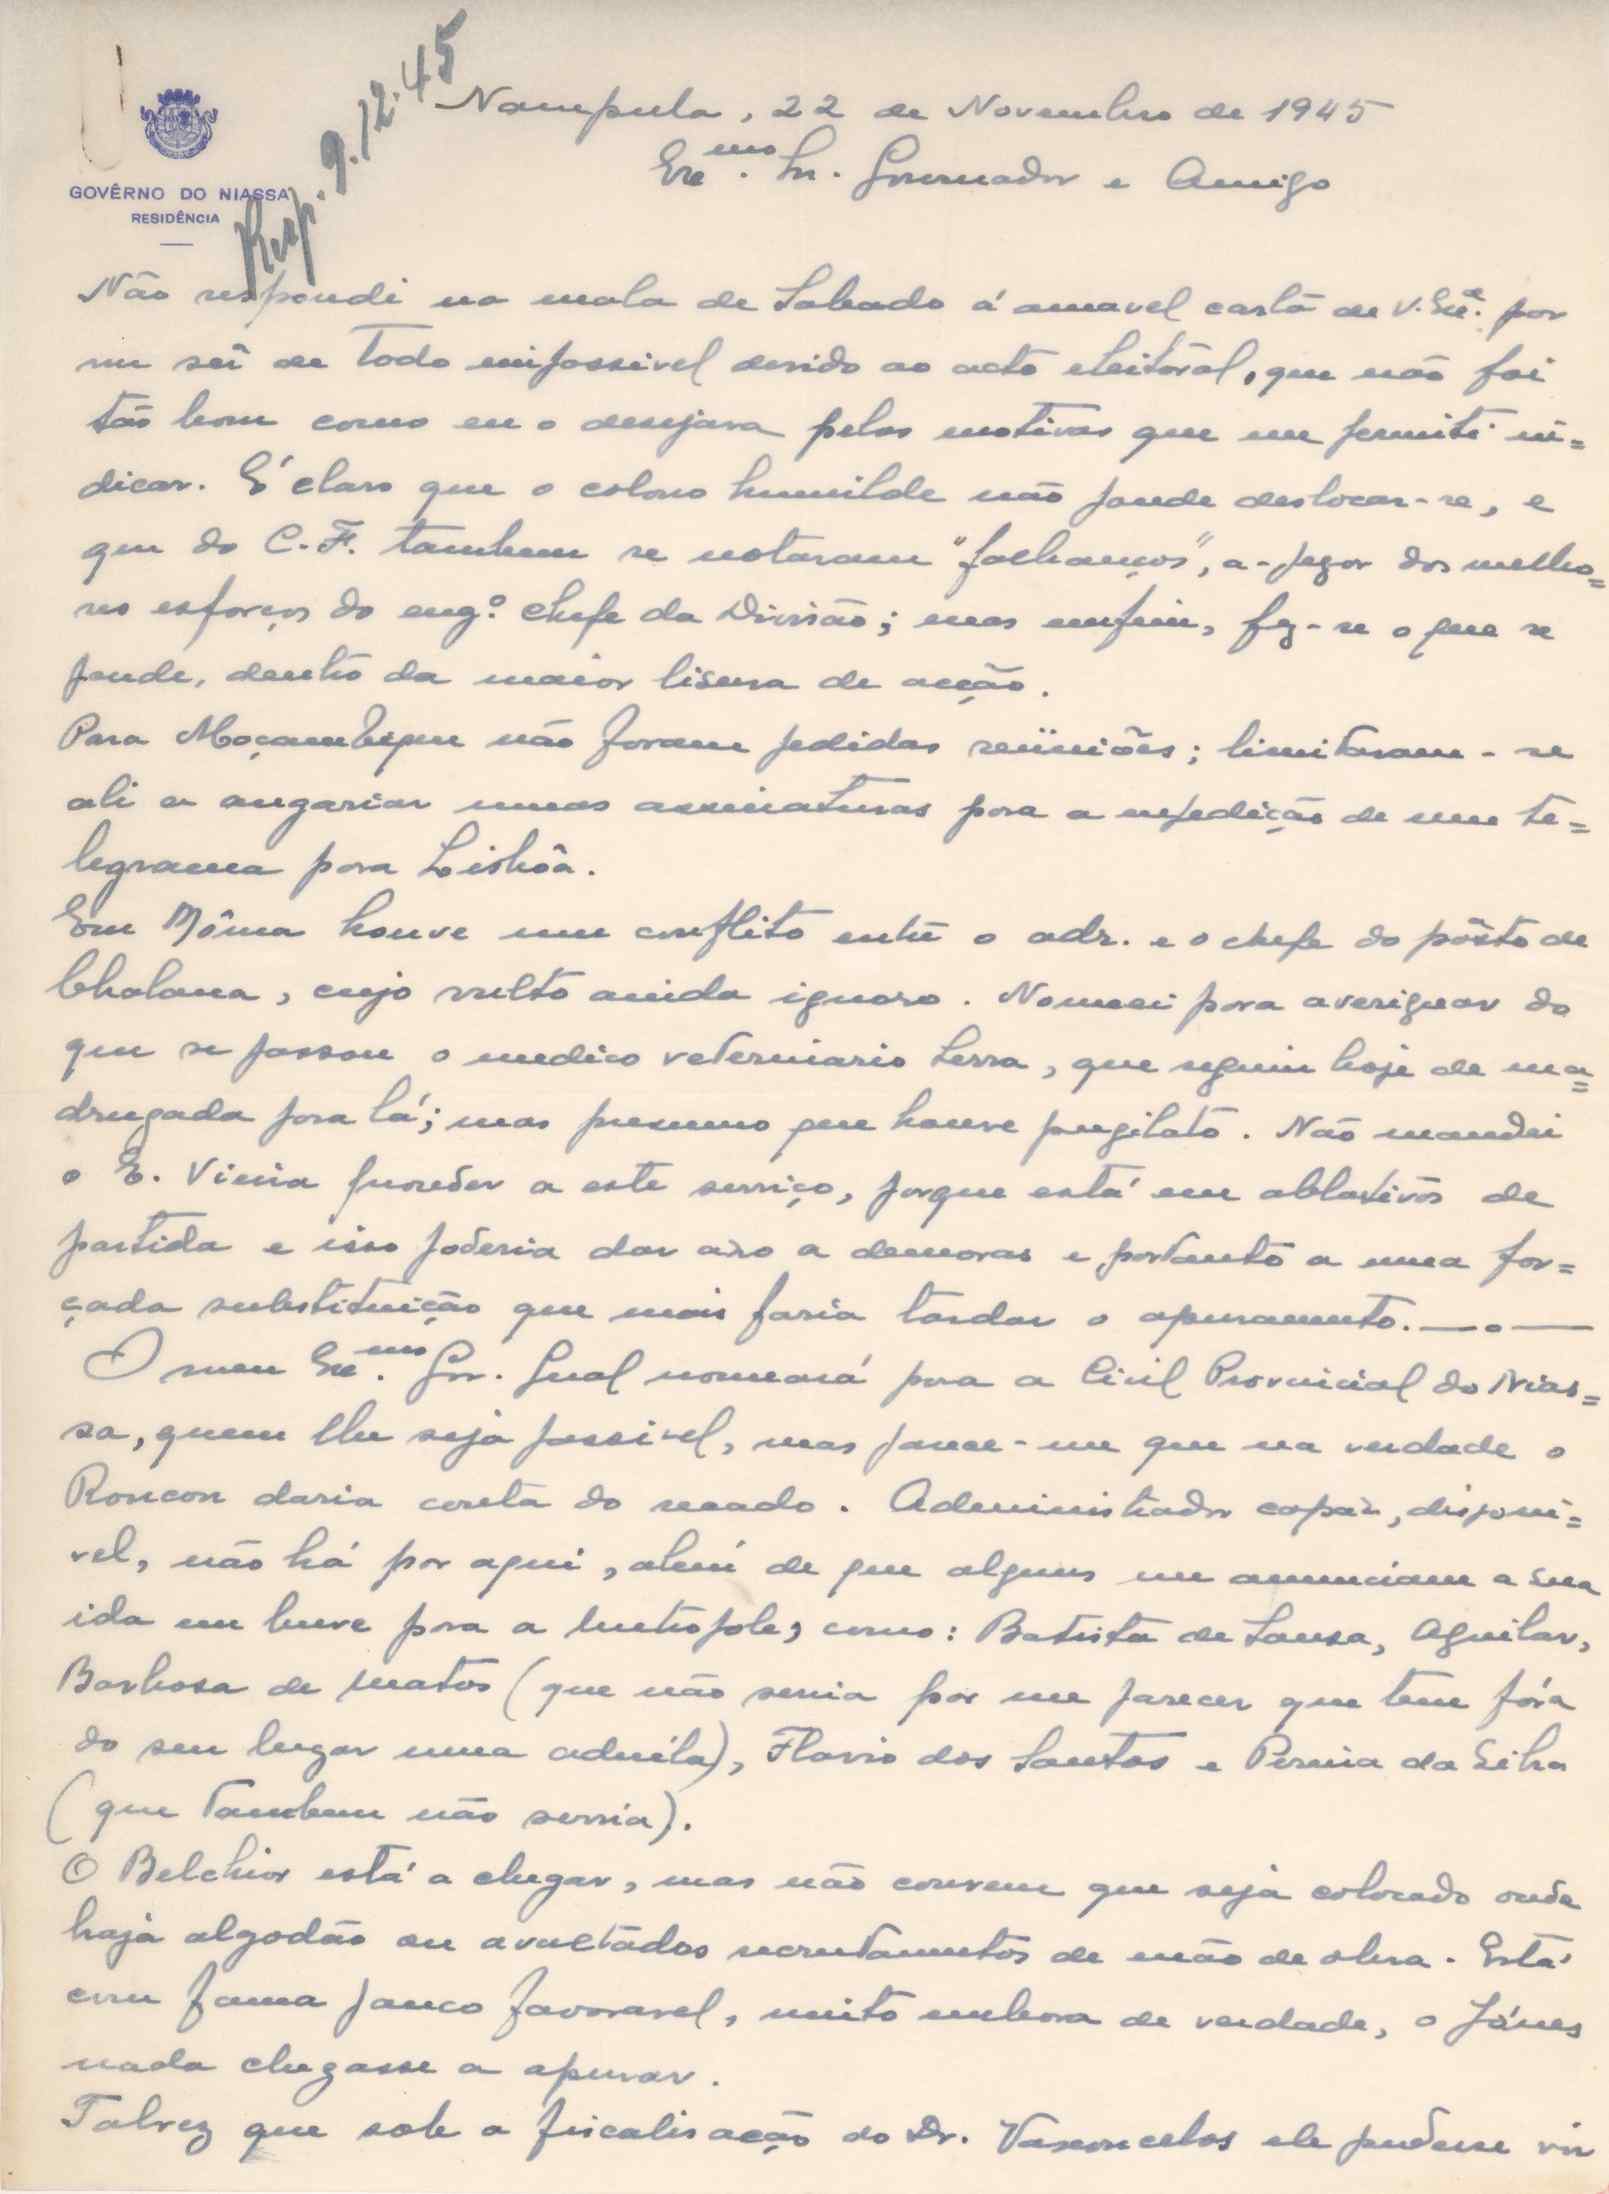 Resp. 9.12.45
GOVÊRNO DO NIASSA
RESIDÊNCIA
Nampula, 22 de Novembro de 1945
Exmo. Sr. Governador e Amigo
Não respondi na mala de Sabado á amavel carta de V. Exª. por
me ser de todo impossivel devido ao acto eleitoral, que não foi
tão bom como eu o desejava pelos motivos que me permiti in=
dicar. É claro que o colono humilde não poude deslocar-se, e
que do C. F. tambem se notaram "falhanços", a-pezar dos melho=
res esforços do eng.º chefe da Divisão; mas emfim, fez-se o que se
poude, dentro da maior lisura de acção.
Para Moçambique não foram pedidas reüniões; limitaram-se
ali a angariar umas assinaturas para a expedição de um te=
legrama para Lisbôa.
Em Môma houve um conflito entre o adr. e o chefe do pôsto de
Chalaua, cujo vulto ainda ignoro. Nomeei para averiguar do
que se passou o medico veterinario Serra, que seguiu hoje de ma=
drugada para lá; mas presumo que houve pugilato. Não mandei
o E. Vieira proceder a este serviço, porque está em ablativos de
partida e isso poderia dar azo a demoras e portanto a uma for=
çada substituição que mais faria tardar o apuramento. —.—
O meu Exmo. Sr. Gual nomeará para a Civil Provincial do Nias=
sa, quem lhe seja possivel, mas parece-me que na verdade o
Roncon daria conta do recado. Administrador capaz, disponi=
vel, não há por aqui, além de que alguns me anunciam a sua
ida em breve para a Metropole, como: Batista de Sousa, Aguilar,
Barbosa de Matos (que não servia por me parecer que tem fóra
do seu lugar uma aduéla), Flavio dos Santos e Pereira da Silva
(que tambem não servia).
O Belchior está a chegar, mas não convem que seja colocado onde
haja algodão ou avultados recrutamentos de mão de obra. Está
com fama pouco favoravel, muito embora de verdade, o
nada chegasse a apurar.
Talvez que sob a fiscalisacção do Dr. Vasconcelos ele pudesse vir